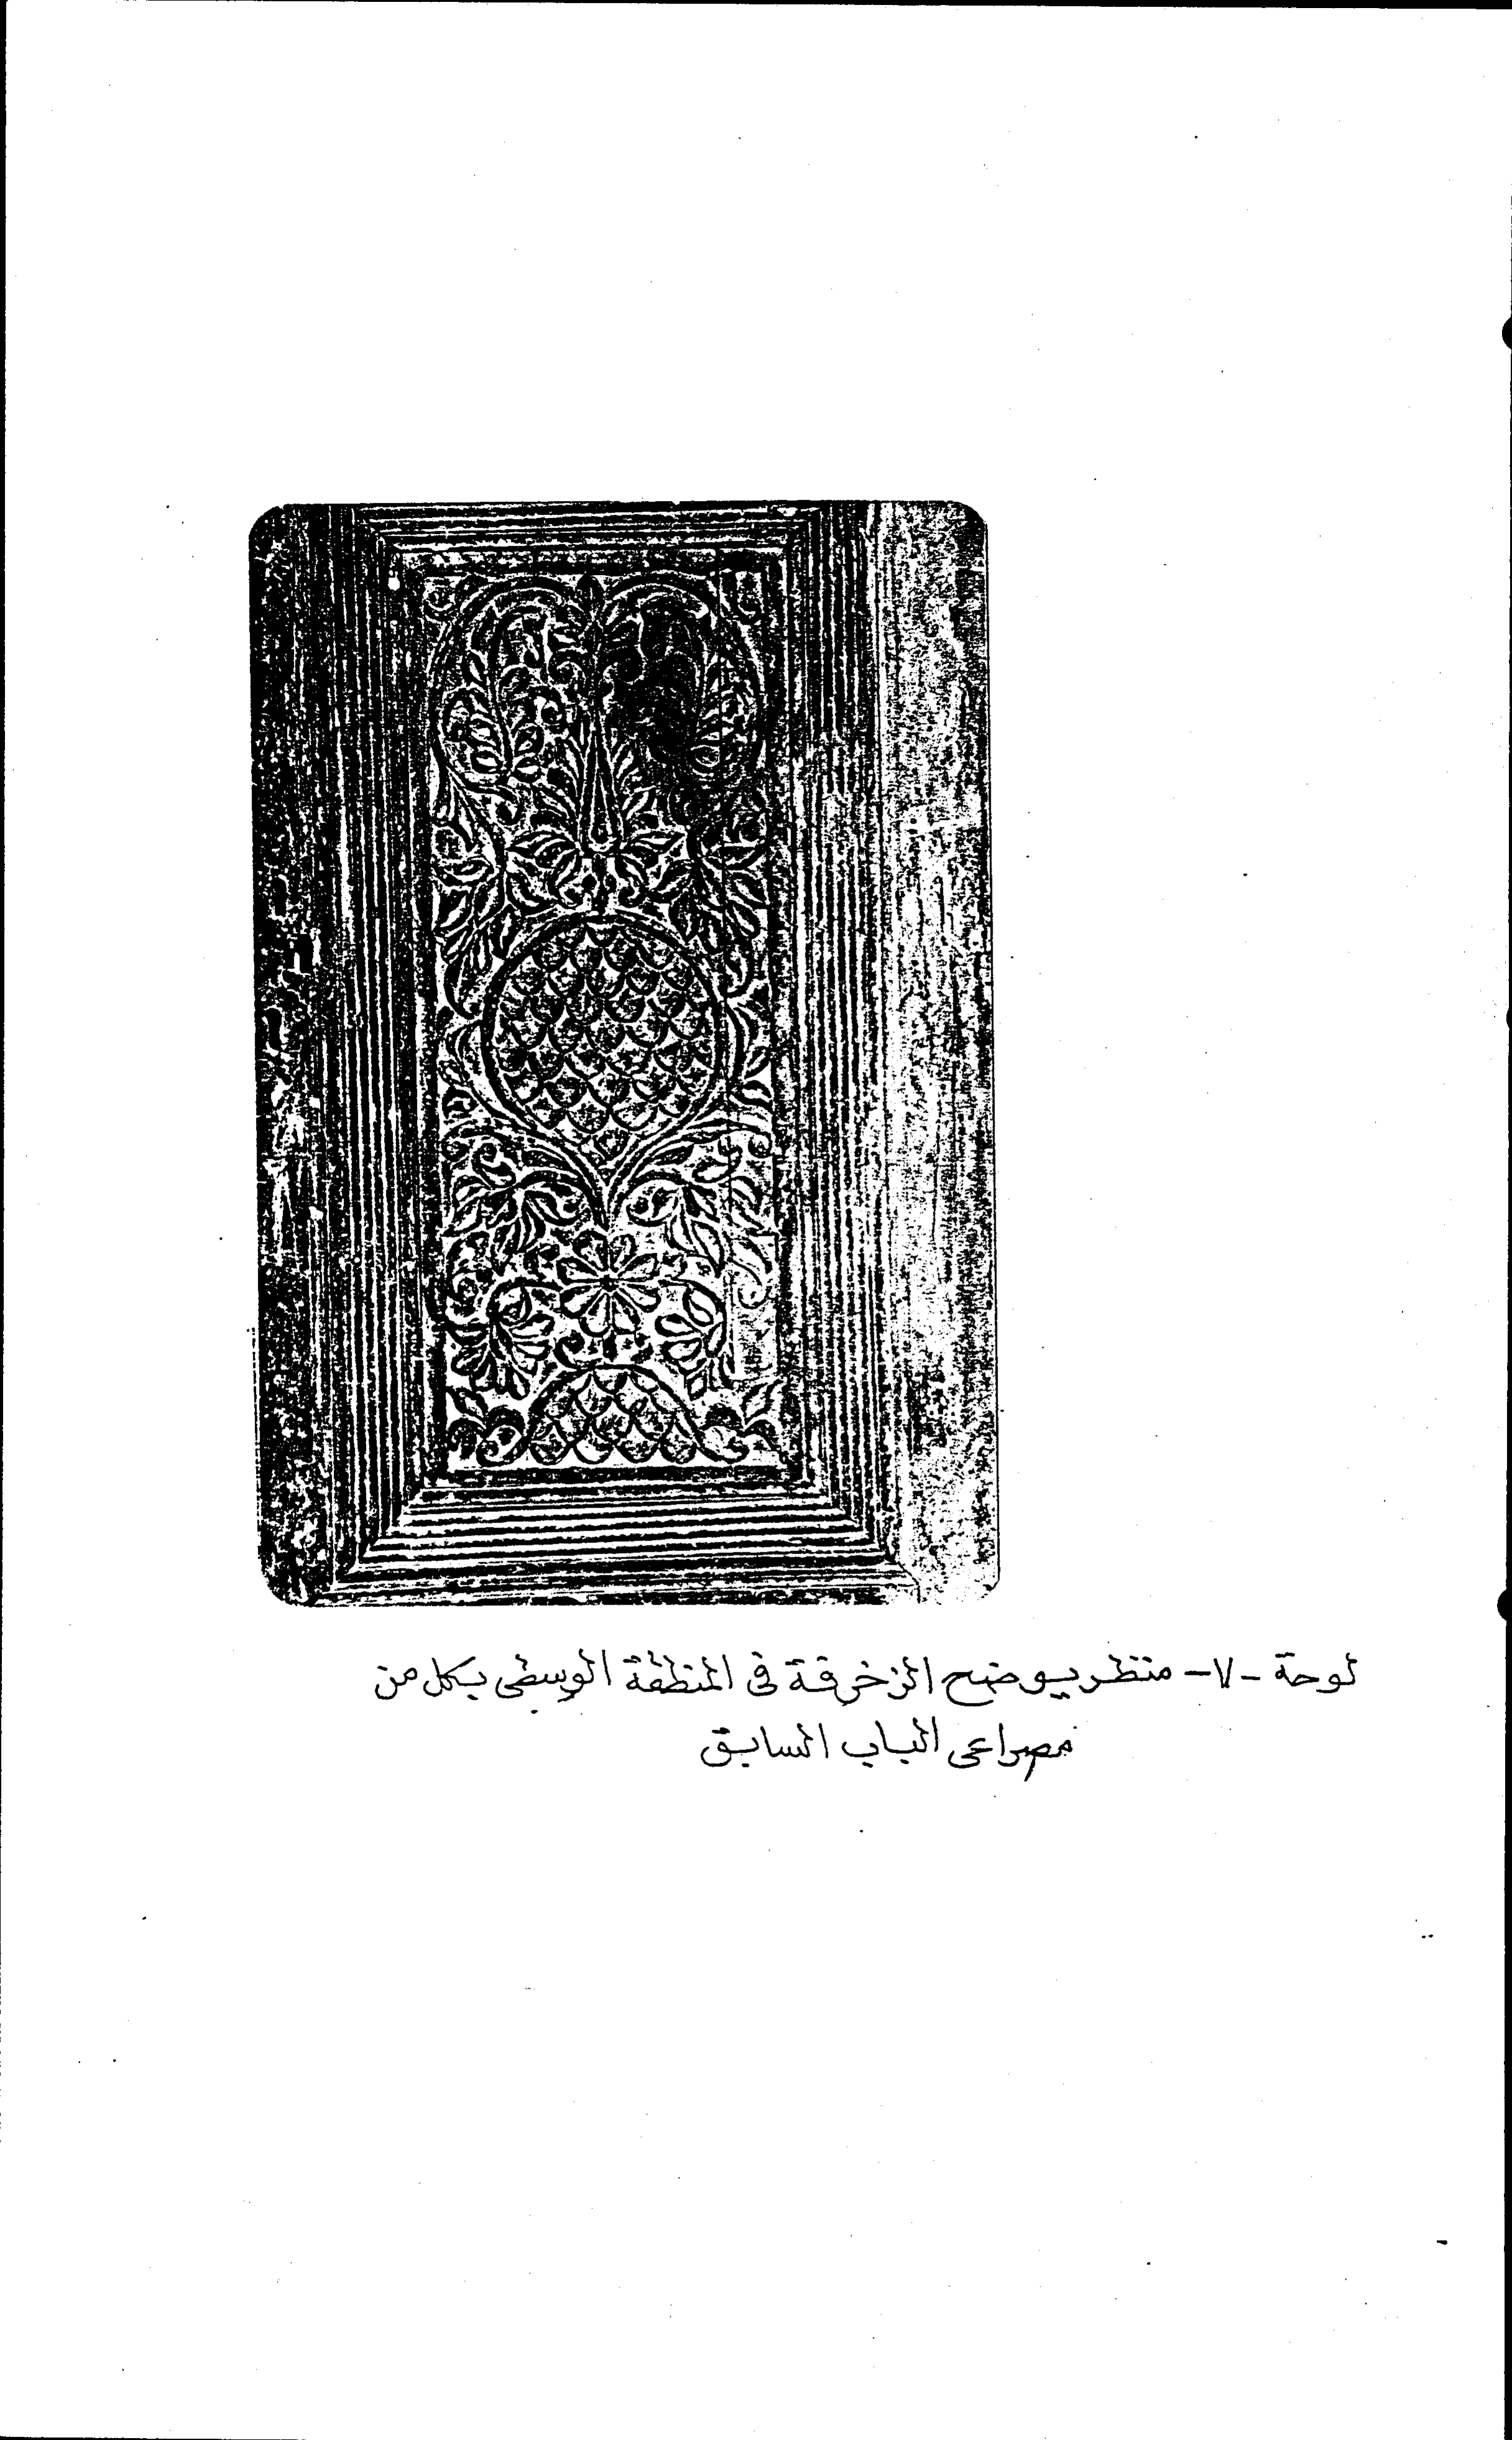 لوحة -٧- منظر يوضح الزخرفة فى المنطقة الوسطى بكل من
مصراعى الباب السابق